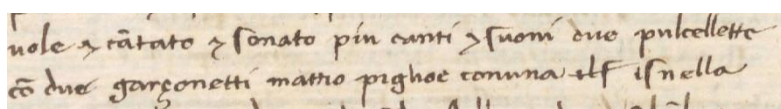 uole ⁊ cātato ⁊ sonato piu canti ⁊ suoni due pulcellette
cō due garçonetti mattio piglioe conuna isnella